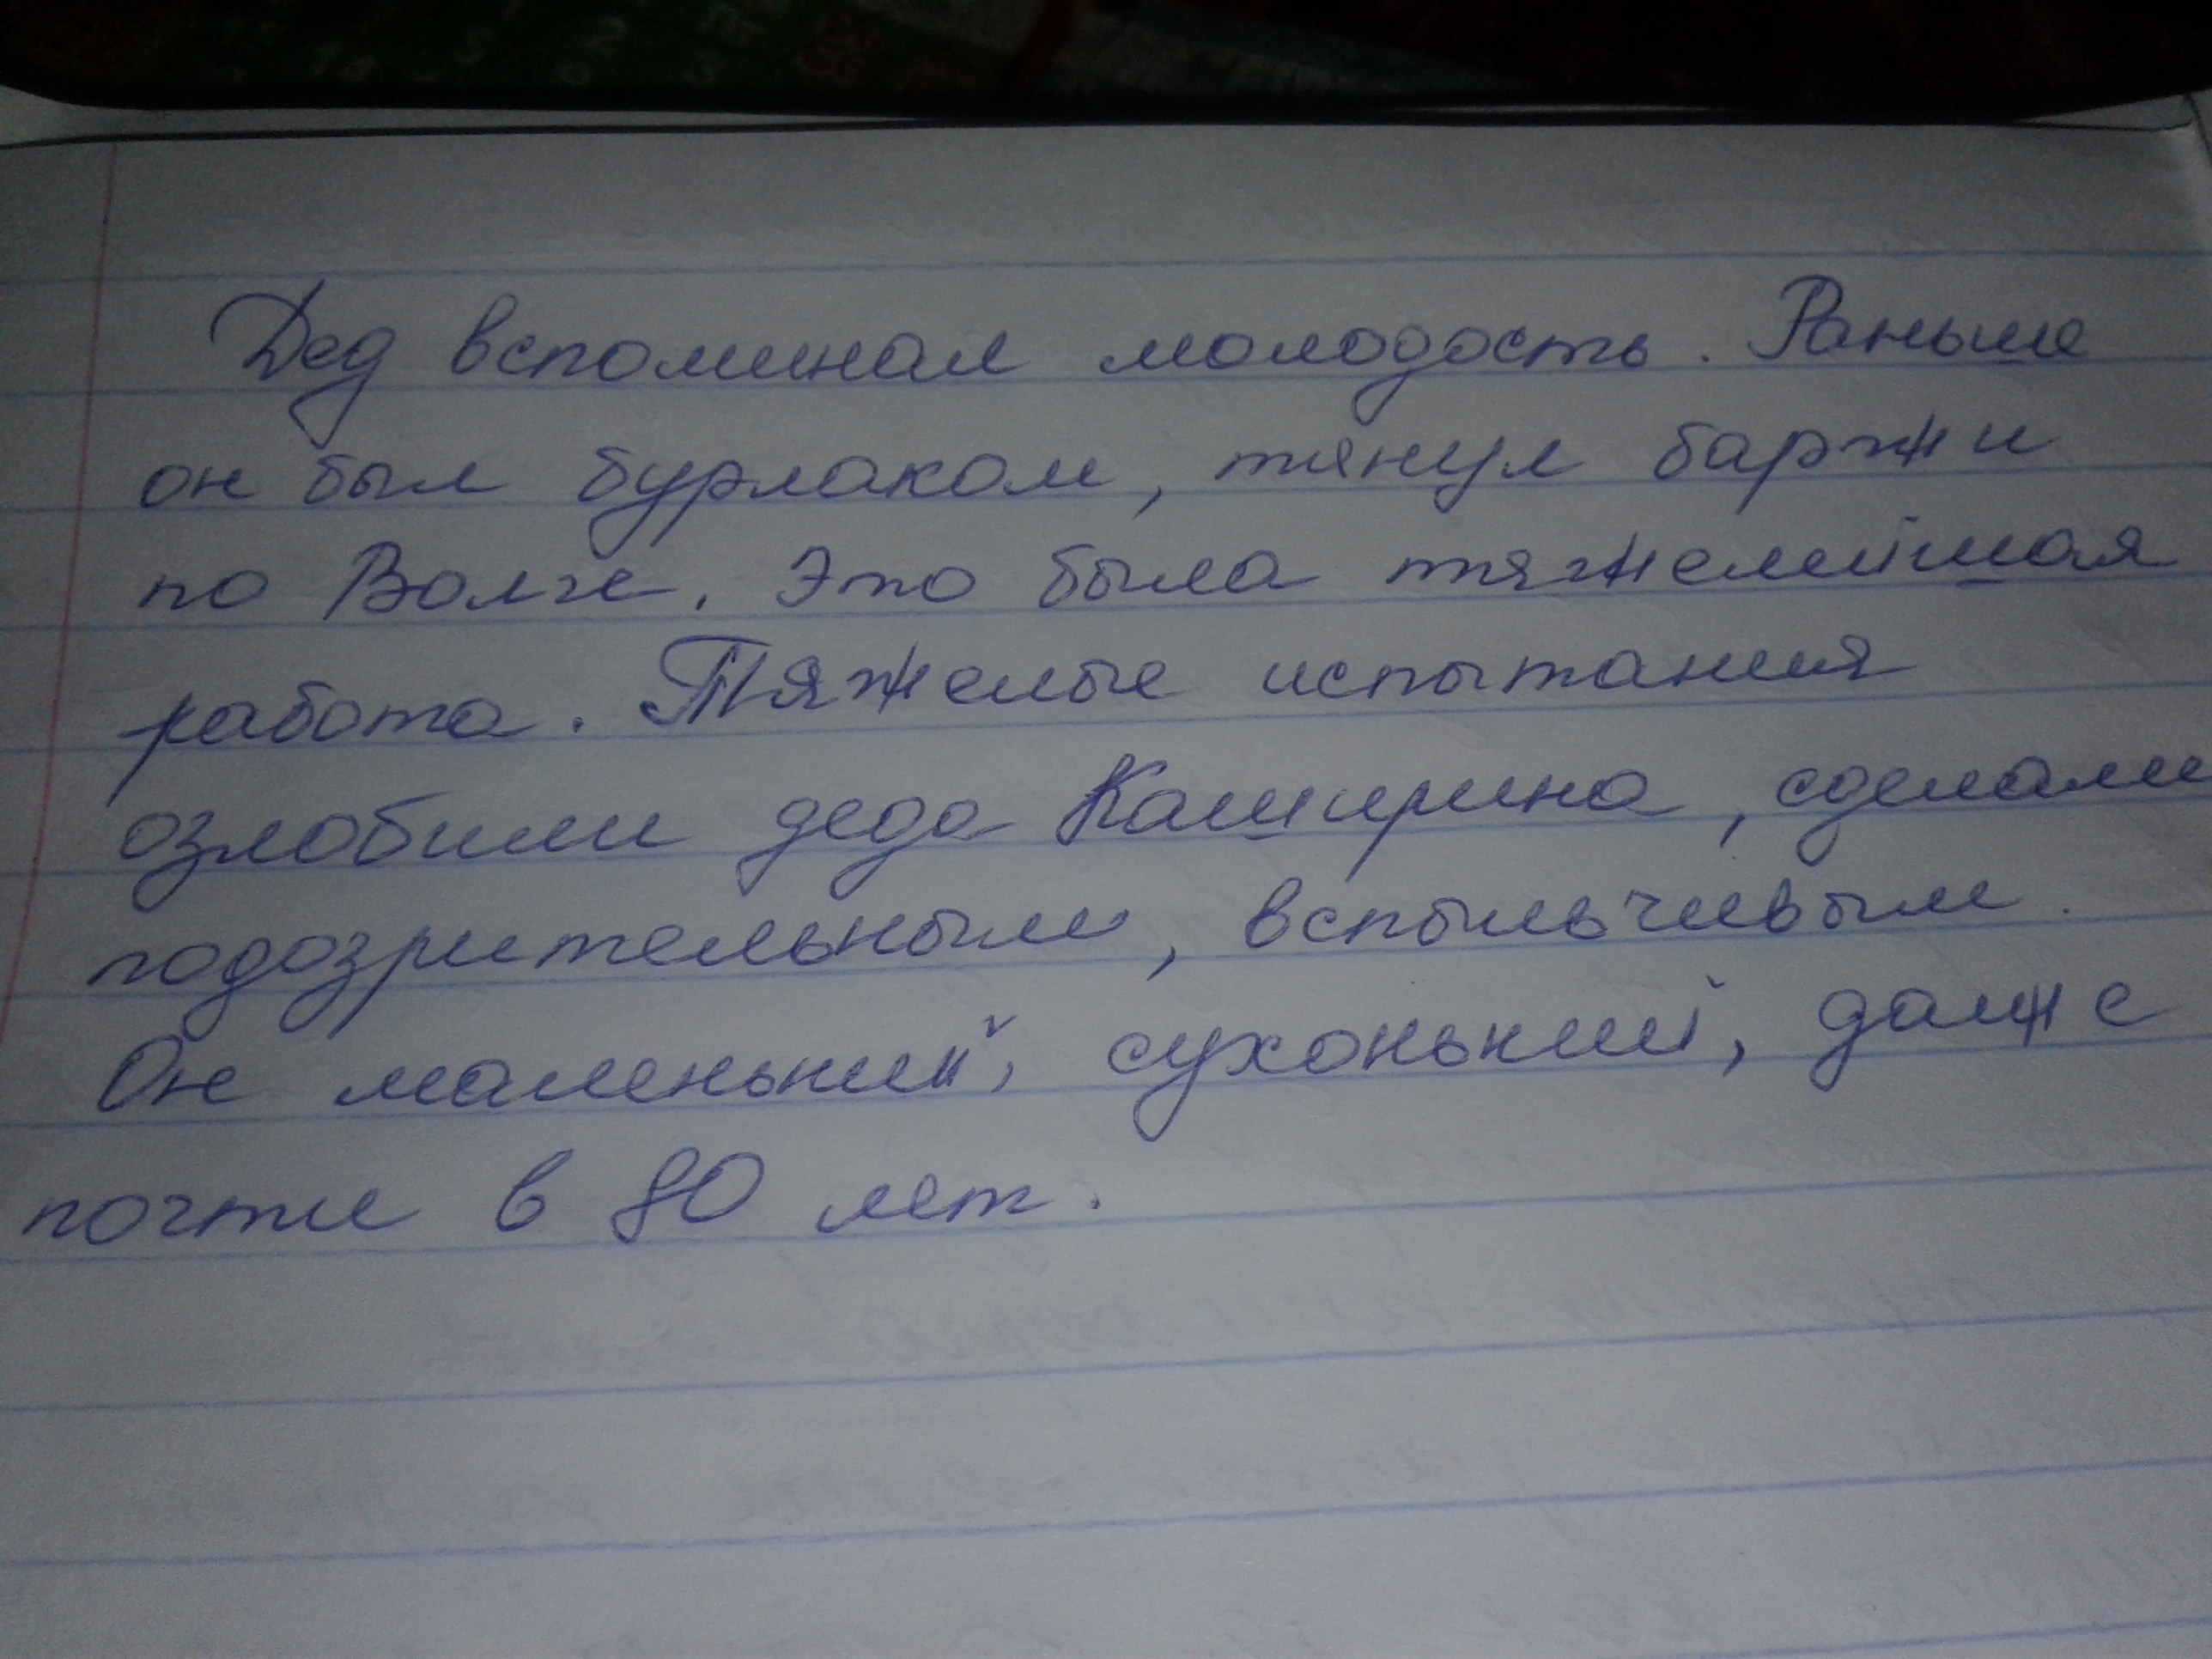 Дед вспоминал молодость. Раньше
он был бурлаком, тянул баржи
по Волге. Это была тяжелейшая
работа. Тяжелые испытания
озлобили деда Каширина, сделали
подозрительным, вспыльчивым.
Он маленький, сухонький, даже
почти в 80 лет.